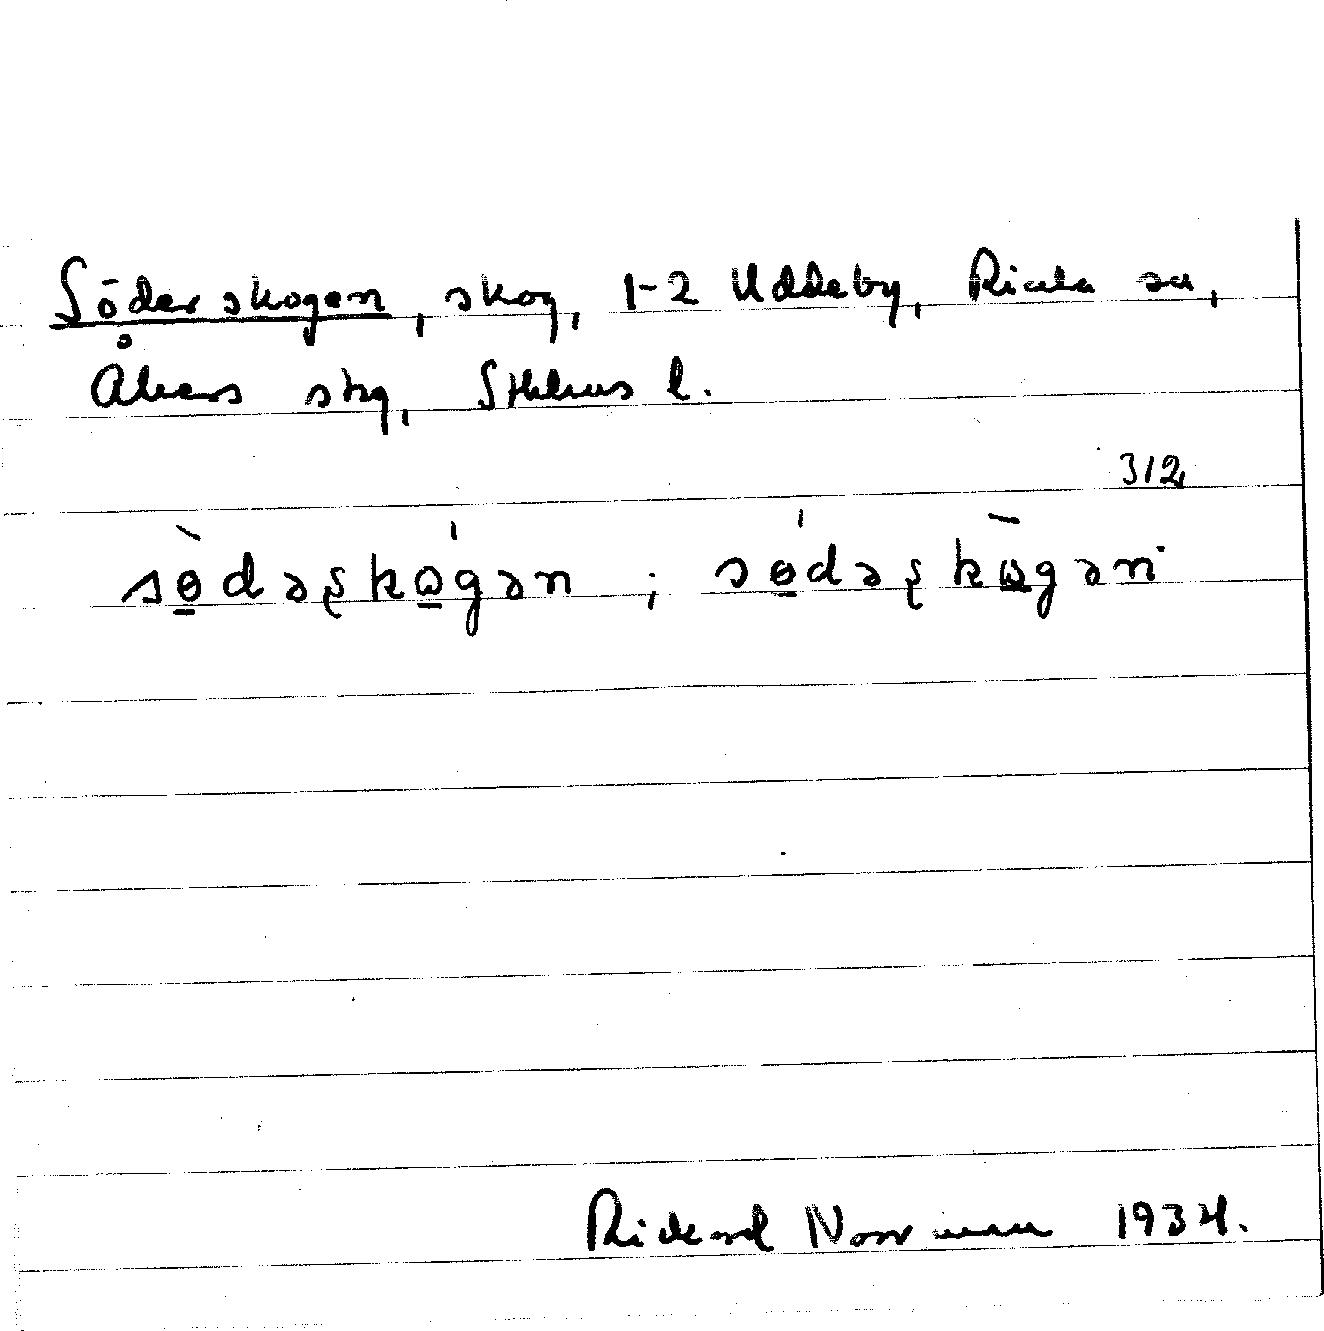 Söderskogen, skog, 1-2 Uddeby, Riala sn,
Åkers skg, Sthlms l.
312
sɵ̀dəʂkɷ́gən ; sɵ́dəʂkɷ̀gən
Rickard Norrman 1934.